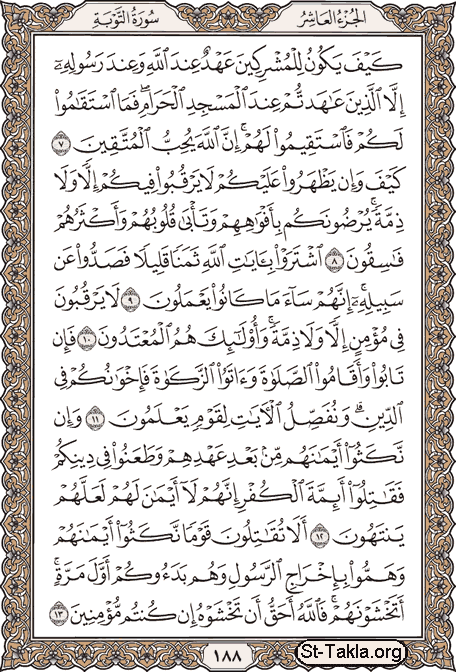 الجزء العاشر
سورة التوبة
كَيْفَ يَكُونُ لِلْمُشْرِكِينَ عَهْدٌ عِندَ ٱللَّهِ وَعِندَ رَسُولِهِۦٓ
إِلَّا ٱلَّذِينَ عَٰهَدتُّمْ عِندَ ٱلْمَسْجِدِ ٱلْحَرَامِ ۖ فَمَا ٱسْتَقَٰمُوا۟
لَكُمْ فَٱسْتَقِيمُوا۟ لَهُمْ ۚ إِنَّ ٱللَّهَ يُحِبُّ ٱلْمُتَّقِينَ ٧
كَيْفَ وَإِن يَظْهَرُوا۟ عَلَيْكُمْ لَا يَرْقُبُوا۟ فِيكُمْ إِلًّا وَلَا
ذِمَّةً ۚ يُرْضُونَكُم بِأَفْوَٰهِهِمْ وَتَأْبَىٰ قُلُوبُهُمْ وَأَكْثَرُهُمْ
فَٰسِقُونَ ٨ ٱشْتَرَوْا۟ بِـَٔايَٰتِ ٱللَّهِ ثَمَنًا قَلِيلًا فَصَدُّوا۟ عَن
سَبِيلِهِۦٓ ۚ إِنَّهُمْ سَآءَ مَا كَانُوا۟ يَعْمَلُونَ ٩ لَا يَرْقُبُونَ
فِى مُؤْمِنٍ إِلًّا وَلَا ذِمَّةً ۚ وَأُو۟لَٰٓئِكَ هُمُ ٱلْمُعْتَدُونَ ١٠ فَإِن
تَابُوا۟ وَأَقَامُوا۟ ٱلصَّلَوٰةَ وَءَاتَوُا۟ ٱلزَّكَوٰةَ فَإِخْوَٰنُكُمْ فِى
ٱلدِّينِ ۗ وَنُفَصِّلُ ٱلْءَايَٰتِ لِقَوْمٍ يَعْلَمُونَ ١١ وَإِن
نَّكَثُوٓا۟ أَيْمَٰنَهُم مِّنۢ بَعْدِ عَهْدِهِمْ وَطَعَنُوا۟ فِى دِينِكُمْ
فَقَٰتِلُوٓا۟ أَئِمَّةَ ٱلْكُفْرِ ۙ إِنَّهُمْ لَآ أَيْمَٰنَ لَهُمْ لَعَلَّهُمْ
يَنتَهُونَ ١٢ أَلَا تُقَٰتِلُونَ قَوْمًا نَّكَثُوٓا۟ أَيْمَٰنَهُمْ
وَهَمُّوا۟ بِإِخْرَاجِ ٱلرَّسُولِ وَهُم بَدَءُوكُمْ أَوَّلَ مَرَّةٍ ۚ
أَتَخْشَوْنَهُمْ ۚ فَٱللَّهُ أَحَقُّ أَن تَخْشَوْهُ إِن كُنتُم مُّؤْمِنِينَ ١٣
١٨٨
St-Takla.org